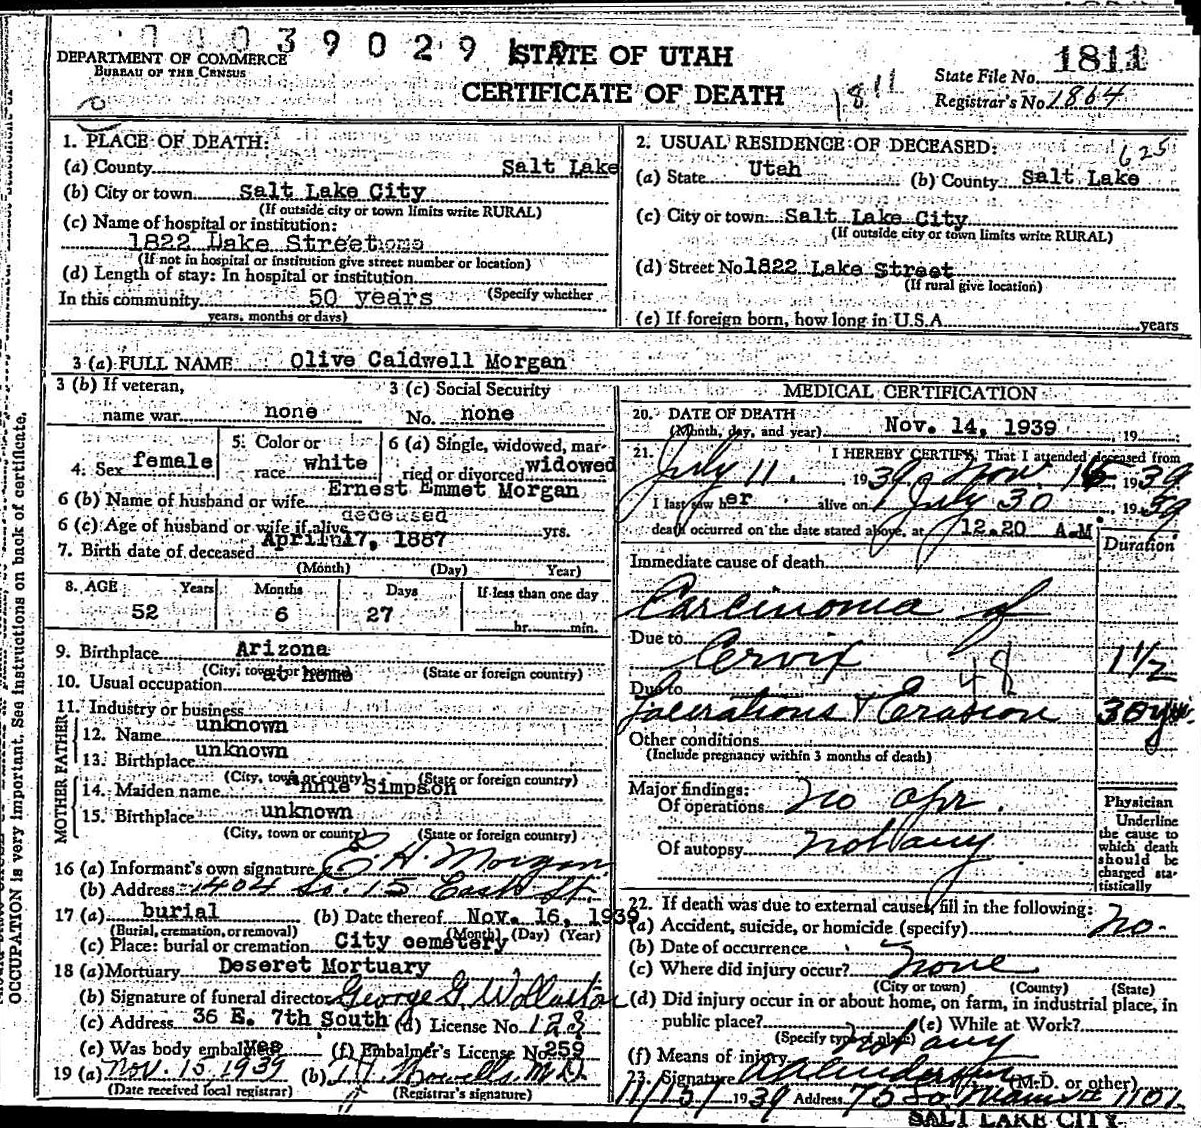 0 0 3 9 0 2 9
DEPARTMENT OF COMMERCE
BUREAU OF THE CENSUS
STATE OF UTAH
CERTIFICATE OF DEATH
1811
State File No. 1811
Registrar's No. 1864
1. PLACE OF DEATH:
(a) County Salt Lake
(b) City or town Salt Lake City
(If outside city or town limits write RURAL)
(c) Name of hospital or institution:
1822 Lake Street
(If not in hospital or institution give street number or location)
(d) Length of stay: In hospital or institution
In this community 50 years (Specify whether
years, months or days)
2. USUAL RESIDENCE OF DECEASED: 625
(a) State Utah (b) County Salt Lake
(c) City or town Salt Lake City
(If outside city or town limits write RURAL)
(d) Street No 1822 Lake Street
(If rural give location)
(e) If foreign born, how long in U.S.A. years
3 (a) FULL NAME Olive Caldwell Morgan
3 (b) If veteran, 3 (c) Social Security
name war none No. none
4. Sex female
5. Color or race white
6 (a) Single, widowed, married or divorced widowed
6 (b) Name of husband or wife Ernest Emmet Morgan
6 (c) Age of husband or wife if alive deceased yrs.
7. Birth date of deceased April 17, 1887
(Month) (Day) Year)
8. AGE Years Months Days If less than one day
52 6 27 hr. min.
9. Birthplace Arizona
(City, town or county) (State or foreign country)
10. Usual occupation at home
11. Industry or business
FATHER
12. Name unknown
13. Birthplace unknown
(City, town or county) (State or foreign country)
MOTHER
14. Maiden name Annie Simpson
15. Birthplace unknown
(City, town or county) (State or foreign country)
16 (a) Informant's own signature E. H. Morgan
(b) Address 1404 So. 15 East St.
17 (a) burial (b) Date thereof Nov. 16, 1939
(Burial, cremation, or removal) (Month) (Day) (Year)
(c) Place: burial or cremation City cemetery
18 (a) Mortuary Deseret Mortuary
(b) Signature of funeral director George G. Wollaston
(c) Address 36 E. 7th South (d) License No. 128
(e) Was body embalmed yes (f) Embalmer's License No 259
19 (a) Nov. 15. 1939 (b) M.D.
(Date received local registrar) (Registrar's signature)
MEDICAL CERTIFICATION
20. DATE OF DEATH
(Month, day, and year) Nov. 14, 1939 , 19
21. I HEREBY CERTIFY, That I attended deceased from
July 11. 1939, Nov. 1939
I last saw her alive on July 30 1939
death occurred on the date stated above, at 12.20 A.M.
Duration
Immediate cause of death
Carcinoma of
Due to Cervix 48 1 1/2
Due to
Lacerations & Erosion 30 yrs
Other conditions
(Include pregnancy within 3 months of death)
Major findings:
Of operations no opr.
Of autopsy not any
Physician
Underline
the cause to
which death
should be
charged sta-
tistically
22. If death was due to external causes, fill in the following:
(a) Accident, suicide, or homicide (specify) no.
(b) Date of occurrence
(c) Where did injury occur? none
(City or town) (County) (State)
(d) Did injury occur in or about home, on farm, in industrial place, in
public place? (e) While at Work?
(Specify type of place) not any
(f) Means of injury
23. Signature (M.D. or other)
11/15/1939 Address 75 So.
SALT LAKE CITY
OCCUPATION is very important. See instructions on back of certificate.